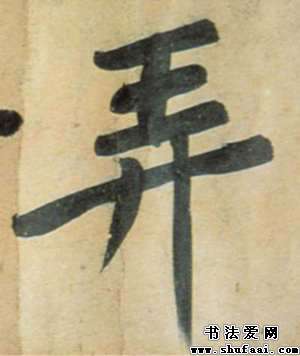 弄
书法爱网
www.shufaai.com